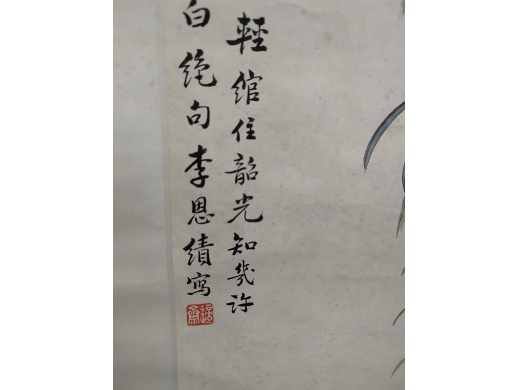 輕綰住韶光知幾許
白絶句李恩績寫